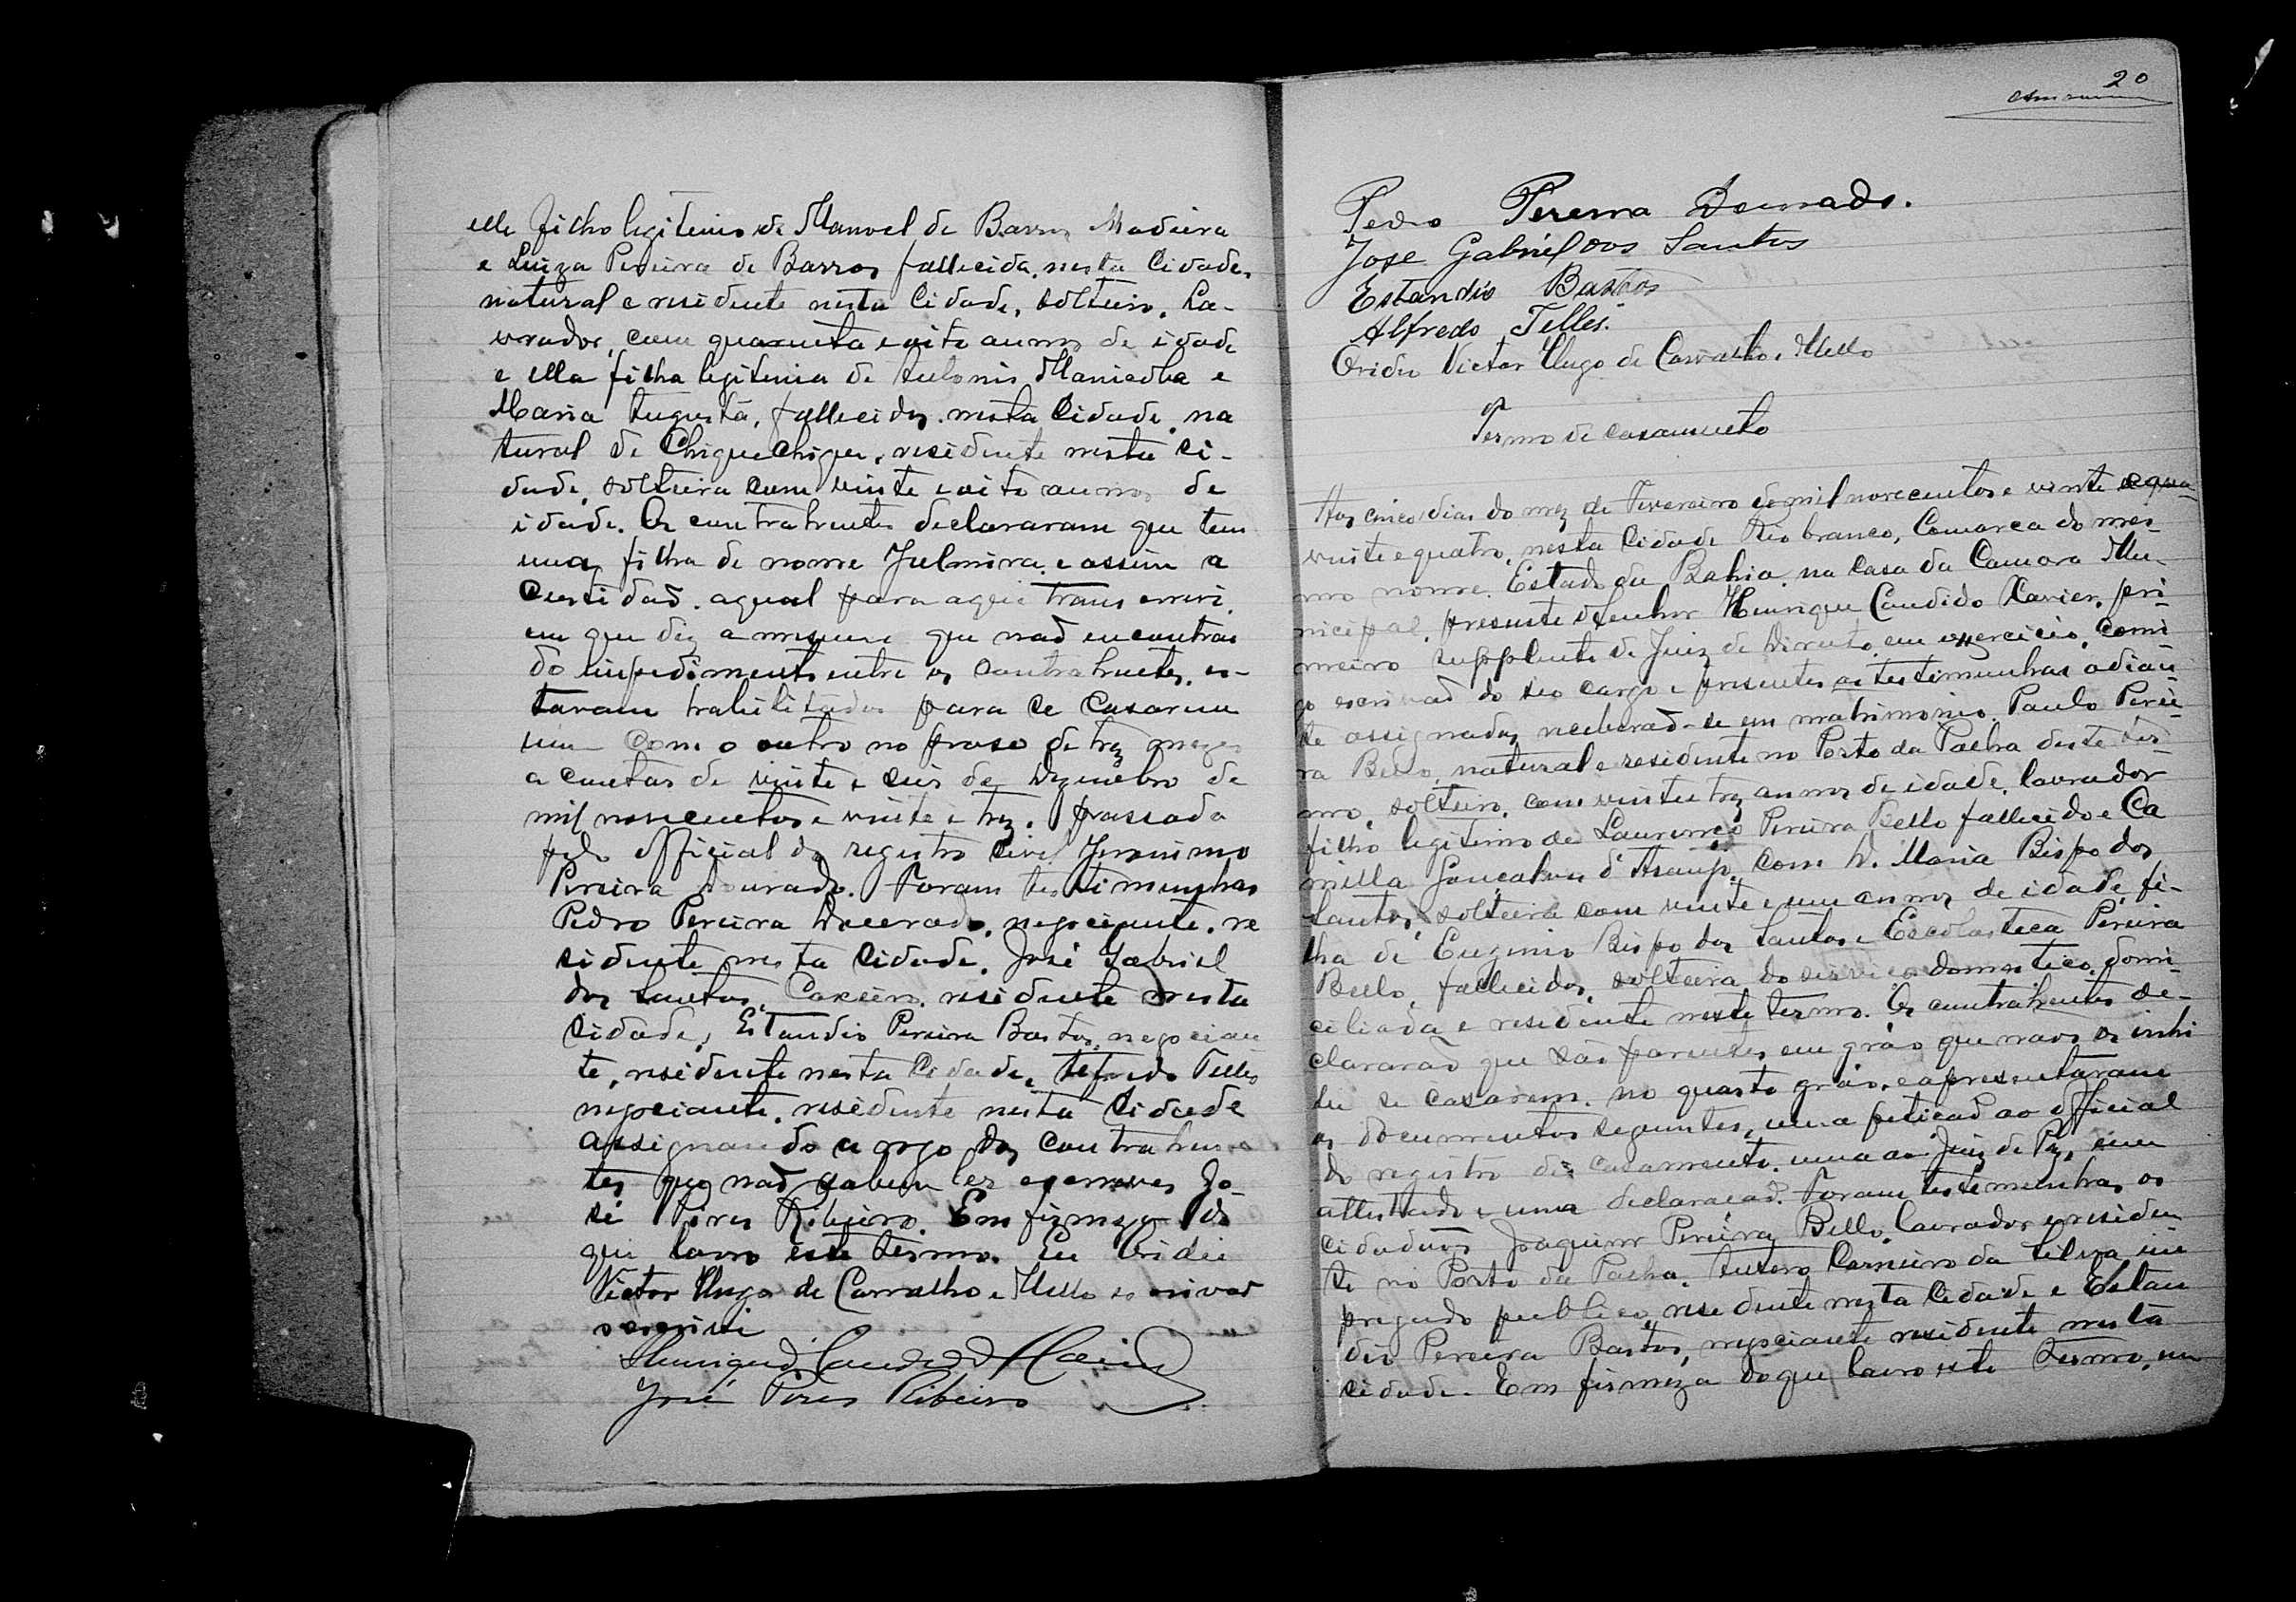 elle filho legitimo de Manoel de Barros Madeira
e Luiza Pereira de Barros fallecida, nesta Cidade,
natural e residente nesta Cidade, solteiro, La-
vrador, com quarenta e oito annos de idade
e ella filha legitima de Antonio Maniçoba e
Maria Augusta, fallecidos nesta Cidade, na
tural de Chiquechique, residente nesta Ci-
dade, solteira com vinte e oito annos de
idade. Os contrahentes declararam que tem
uma filha de nome Julmira e assim a
Certidaõ aqual para aqui transcrevi,
em que diz a mesma que naõ encontran
do impedimento entre os contrahentes, es-
tavam habilitados para se casarem
um com o outro no praso de trez mezes
a contar de vinte e seis de Dezembro de
mil novecentos e vinte e trez. passada
pelo official do registro civel Jeronimo
Pereira Dourado. Foram testimunhas
Pedro Pereira Dourado, negociante, re
sidente nesta Cidade, José Gabriel
dos Santos, residente nesta
Cidade, Estandio Pereira Bastos, negocian
te, residente nesta Cidade, Alfredo Telles
negociante, residente nesta Cidade
assignando a rogo dos contrahen
tes que naõ sabem ler escrever Jo-
sé Pires Ribeiro. Em firmeza do
que lavro este termo. Eu Oridio
Victor Hugo de Carvalho e Mello escrivaõ
o escrivi
Henrique Candido Xavier
José Pires Ribeiro
20
Pedro Pereira Dourado.
Jose Gabriel dos Santos
Estandio Bastos
Alfredo Telles.
Oridio Victor Hugo de Carvalho e Mello
Termo de casamento
Aos cinco dias do mez de Fevereiro de mil novecentos e vinte e qua-
vinte e quatro, nesta Cidade Rio branco, Comarca do mes-
mo nome, Estado da Bahia, na Casa da Camara Mu-
nicipal, presente o senhor Henrique Candido Xavier, pri-
meiro supplente de Juiz de Direito, em exercicio, comi
go escrivaõ do seo cargo e presentes as testimunhas adian-
te assignadas, receberaõ-se em matrimonio, Paulo Perei-
ra Bello, natural e residente no Porto da Palha deste ter-
mo, solteiro, com vinte e trez annos de idade, lavrador
filho legitimo de Lourenço Pereira Bello fallecido e Ca
milla Gonçalves d'Araujo, com D. Maria Bispo dos
Santos, solteira com vinte e um annos de idade fi-
lha de Eugenio Bispo dos Santos e Escolastica Pereira
Bello, fallecidos, solteira do serviço domestico, domi-
ciliada e residente neste termo. Os contrahentes de-
clararaõ que são parentes em gráo que naos os inhi
be se casarem, no quarto gráo, e apresentaram
os documentos seguintes, uma peticaõ ao official
do registro de casamento, uma ao Juiz de Paz, um
attestado e uma declaracaõ. Foram testimunhas os
cidadaõs Joaquim Pereira Bello, lavrador e residen
te no Porto da Palha, Antero Carneiro da Silva em
pregado publico, residente nesta Cidade e Estan
dio Pereira Bastos, negociante residente nesta
cidade. Em firmeza do que lavro este termo, eu